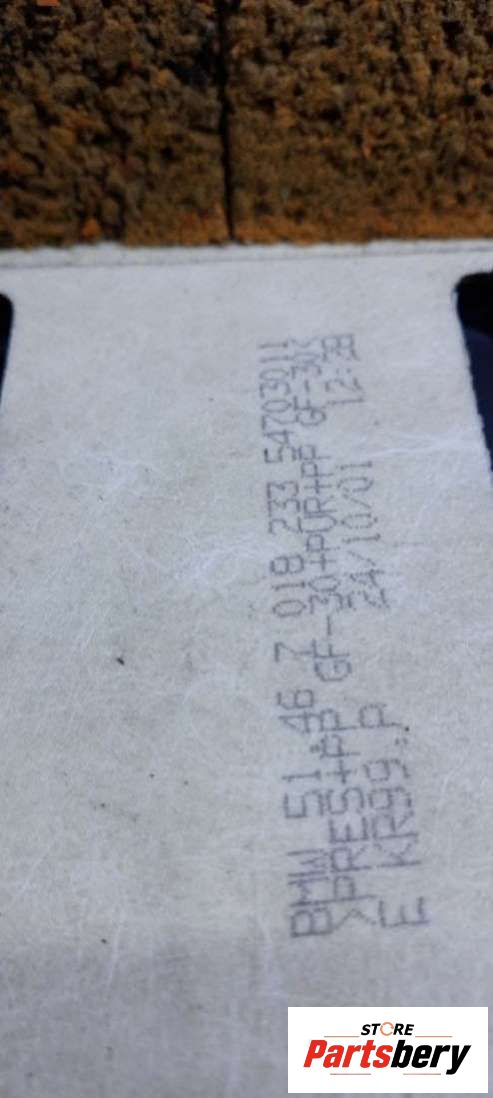 BMW 51.46 7 018 233 54703011
>PRES+PP GF-30+PUR+PP GF-30<
E KR99.P 24/10/01 12:38
STORE
Partsbery